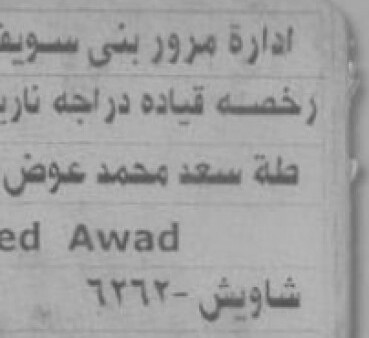 ادارة مرور بنى سويف
رخصه قياده دراجه ناريه
طة سعد محمد عوض
ed Awad
شاويش -٦٢٦٢